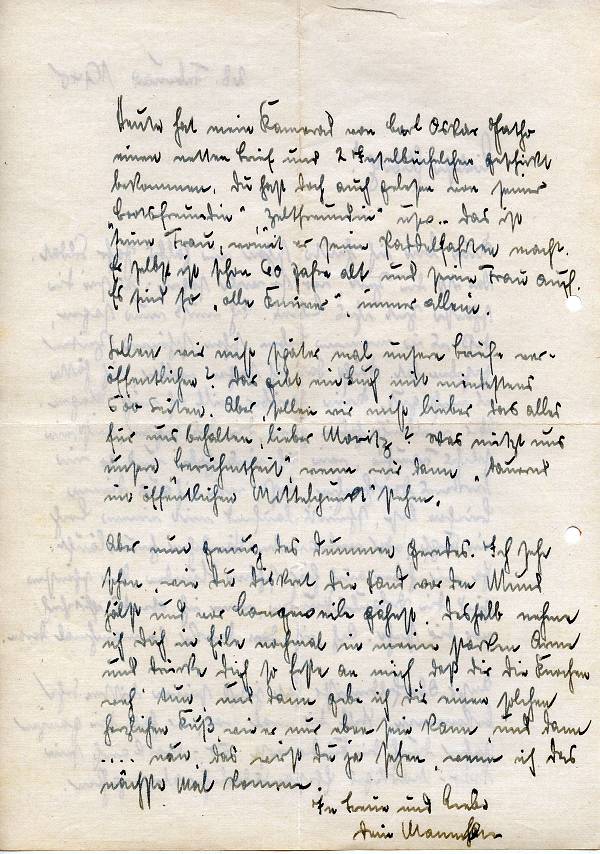 Heute hat mein Kamerad von Carl Oskar Jatho
einen netten Brief und 2 Inselbüchelchen geschickt
bekommen. Du hast doch auch gelesen von seiner
"Bootsfreundin" "Zeltfreundin" usw.. Das ist
seine Frau, womit er seine Paddelfahrten macht.
Er selbst ist schon 60 Jahre alt und seine Frau auch.
Es sind so "alte Knürer", immer allein.
Sollen wir nicht später mal unsere Briefe ver-
öffentlichen? Das gibt ein Buch mit mindestens
500 Seiten. Aber, sollen wir nicht lieber das alles
für uns behalten, lieber Moritz? Was nützt uns
unsere "Berühmtheit", wenn wir dann "dauernd
im öffentlichen Mittelpunkt" stehn.
Aber nun genug des dummen Geredes. Ich sehe
schon, wie Du diskret die Hand vor den Mund
hälst und vor Langeweile gähnst. Deshalb nehme
ich Dich in Eile nochmal in meine starken Arme
und drücke Dich so feste an mich, daß dir die Knochen
weh tun, und dann gebe ich dir einen solchen
herzlichen Kuß, wie er nur eben sein kann, und dann
.... nun, das wirst du ja sehen, wenn ich das
nächste Mal komme.
In Treue und Liebe
Dein